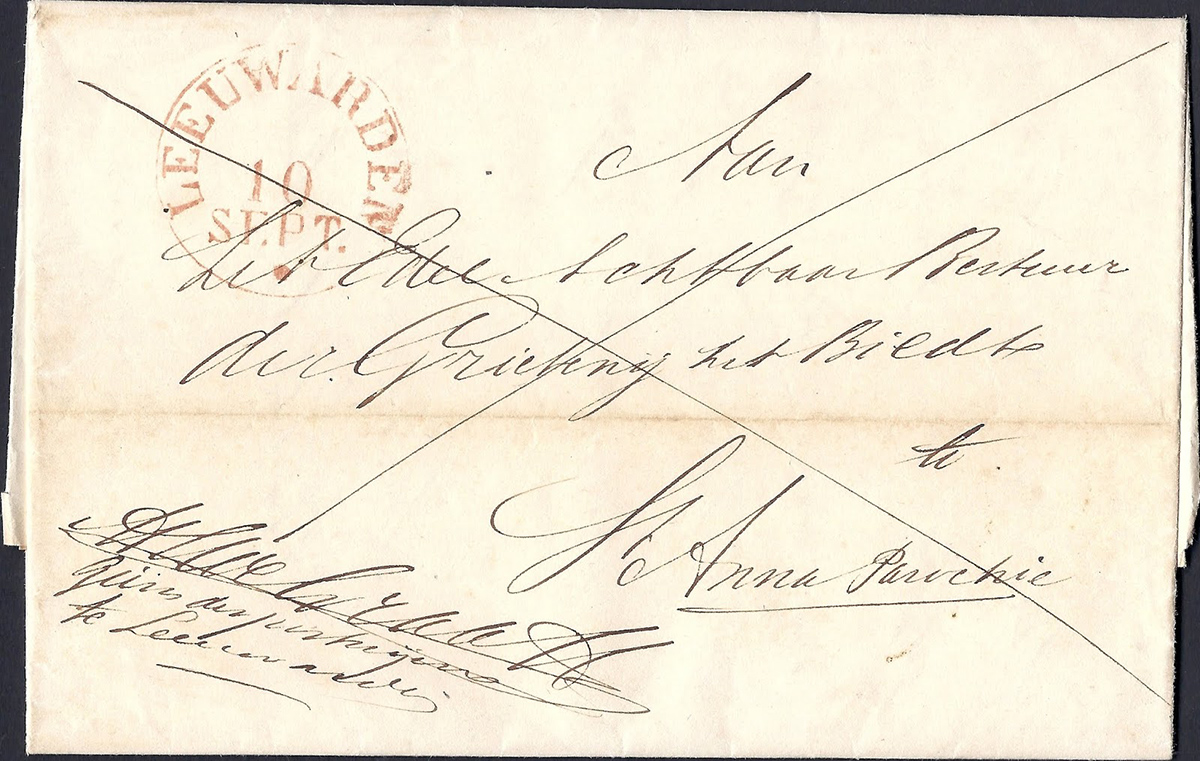 LEEUWARDEN
10
SEPT.
Aan
het Edel Achtbaar Bestuur
der Grieteny het Bildt
te
St Anna Parochie
te Leeuwarden